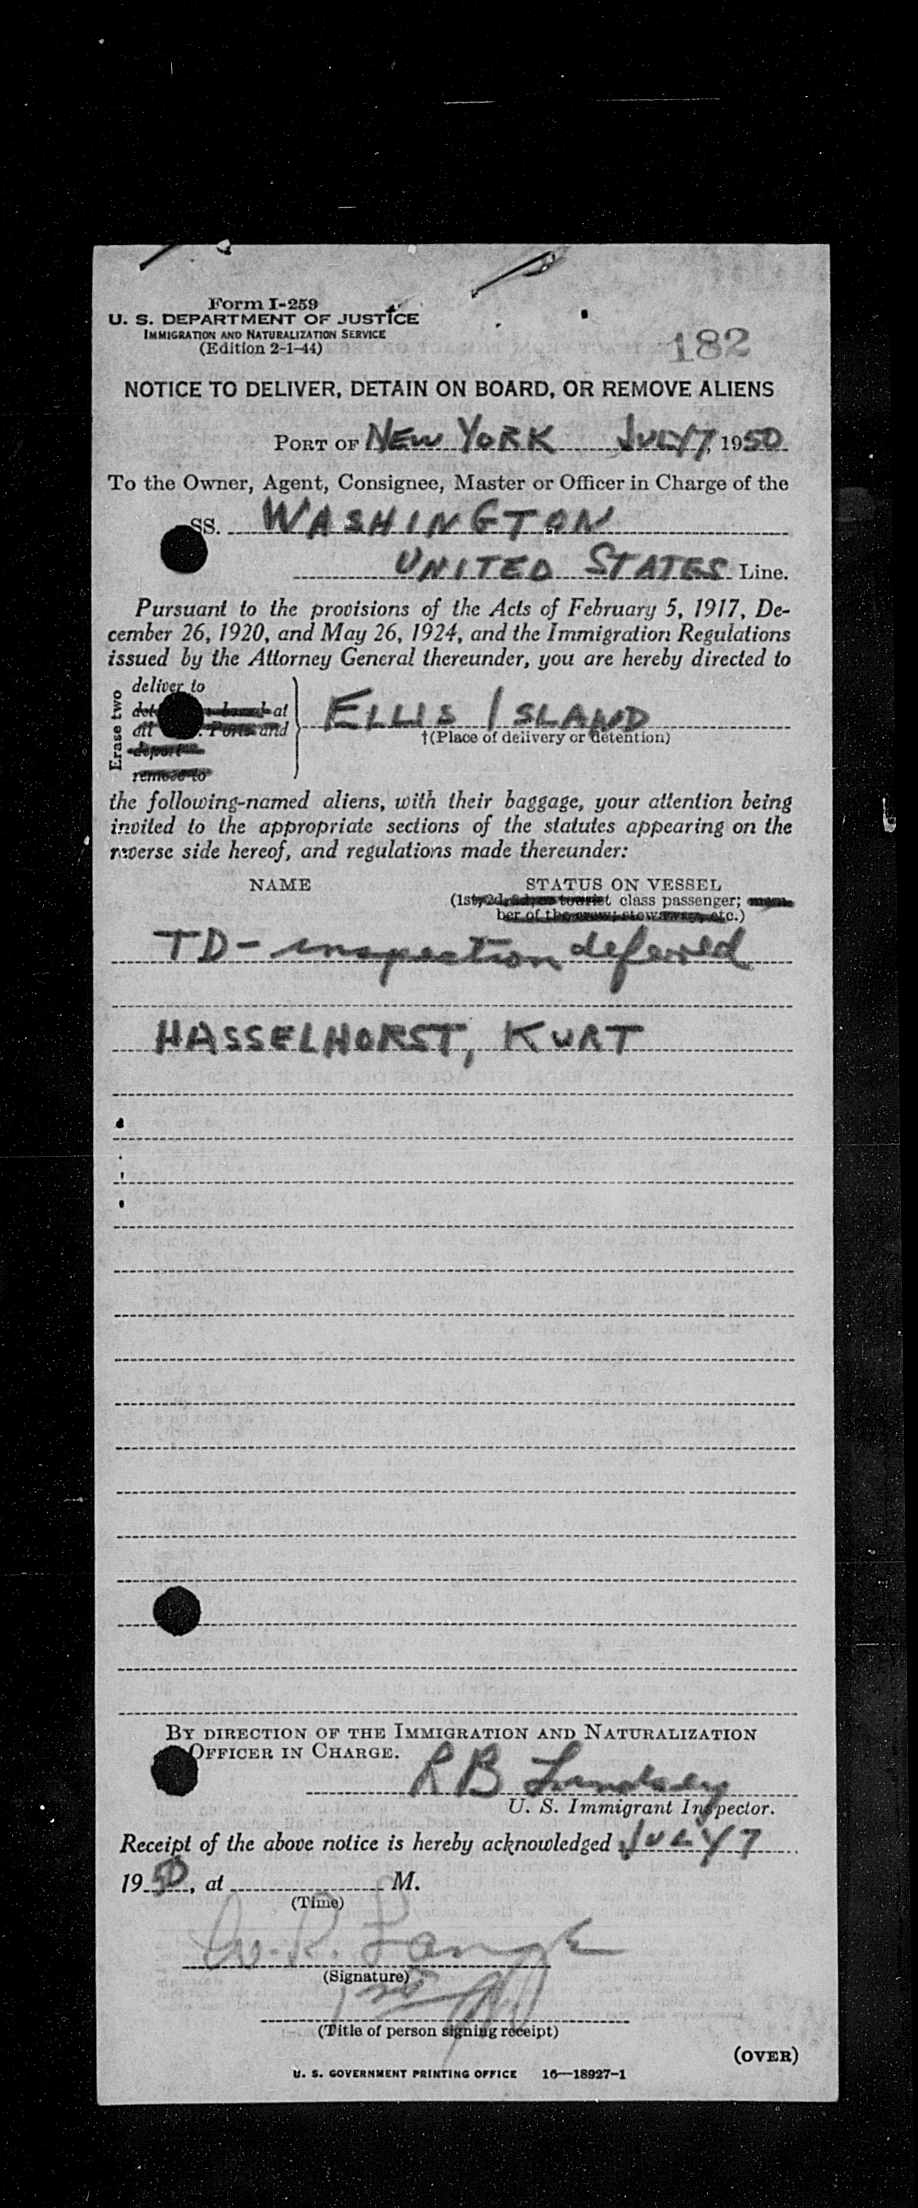 Form I-259
U. S. DEPARTMENT OF JUSTICE
IMMIGRATION AND NATURALIZATION SERVICE
(Edition 2-1-44)
182
NOTICE TO DELIVER, DETAIN ON BOARD, OR REMOVE ALIENS
PORT OF NEW YORK JULY 7, 1950
To the Owner, Agent, Consignee, Master or Officer in Charge of the
SS. WASHINGTON
UNITED STATES Line.
Pursuant to the provisions of the Acts of February 5, 1917, De-
cember 26, 1920, and May 26, 1924, and the Immigration Regulations
issued by the Attorney General thereunder, you are hereby directed to
Erase two
deliver to
at
all Ports and
deport
remove to
ELLIS ISLAND
†(Place of delivery or detention)
the following-named aliens, with their baggage, your attention being
invited to the appropriate sections of the statutes appearing on the
reverse side hereof, and regulations made thereunder:
NAME STATUS ON VESSEL
(1st, 2d, 3d, or tourist class passenger; mem-
ber of the crew; stowaway, etc.)
TD - inspection deferred
HASSELHORST, KURT
BY DIRECTION OF THE IMMIGRATION AND NATURALIZATION
OFFICER IN CHARGE.
R B Lindsey
U. S. Immigrant Inspector.
Receipt of the above notice is hereby acknowledged JULY 7
1950, at M.
(Time)
W. R. Lange
(Signature)
1st
(Title of person signing receipt)
(OVER)
U. S. GOVERNMENT PRINTING OFFICE 16—18927-1